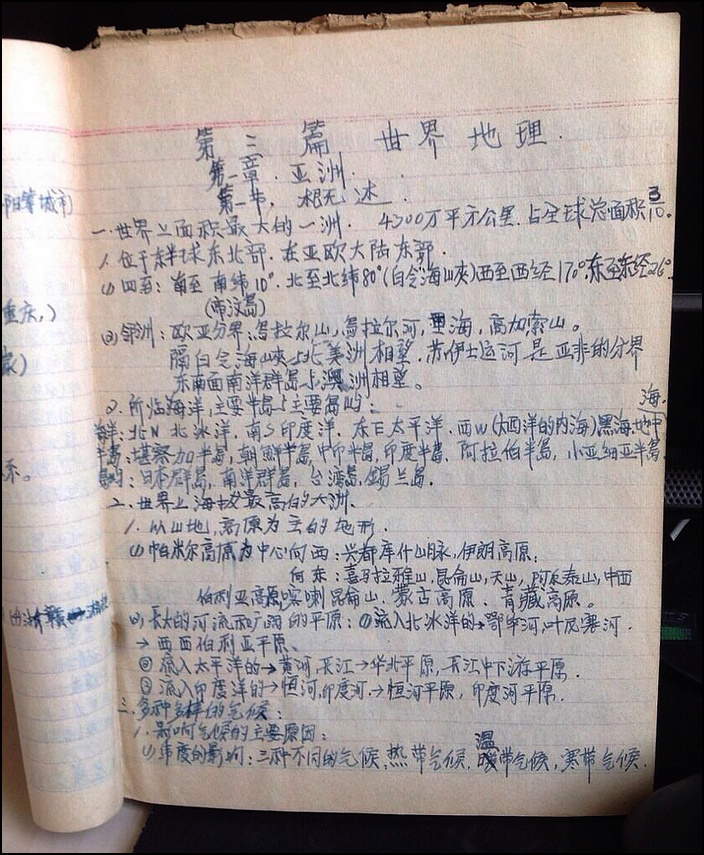 第三篇 世界地理.
第一章.亚洲.
第一节,概况述
一.世界上面积最大的一洲. 4300万平方公里.占全球总面积3/10.
1.位于东半球东北部.在亚欧大陆东部.
(1)四至:南至南纬10°.北至北纬80°(白令海峡)西至西经170°,东至东经26°.
(帝汶岛)
(2)邻洲:欧亚分界:乌拉尔山,乌拉尔河,里海,高加索山。
隔白令海峡与北美洲相望.苏伊士运河是亚非的分界
东南面南洋群岛与澳洲相望。
2.所临海洋,主要半岛与主要岛屿:
海洋:北N北冰洋,南S印度洋,东E太平洋.西W(大西洋的内海)黑海.地中海.
半岛:堪察加半岛,朝鲜半岛,中印半岛,印度半岛.阿拉伯半岛,小亚细亚半岛.
岛屿:日本群岛,南洋群岛,台湾岛,锡兰岛.
二.世界上海拔最高的大洲.
1.以山地,高原为主的地形.
(1)帕米尔高原为中心向西:兴都库什山脉,伊朗高原;
向东:喜马拉雅山,昆仑山,天山,阿尔泰山,中西
伯利亚高原喀喇昆仑山,蒙古高原.青藏高原。
(2)长大的河流和广阔的平原:①流入北冰洋的→鄂毕河,叶尼塞河.
→西西伯利亚平原.
②流入太平洋的→黄河,长江→华北平原,长江中下游平原.
③流入印度洋的→恒河,印度河→恒河平原,印度河平原.
三.多种多样的气候:
1.影响气候的主要原因:
(1)纬度的影响:三种不同的气候,热带气候.温带气候,寒带气候.
阳等城市)
重庆,)
家)
系。